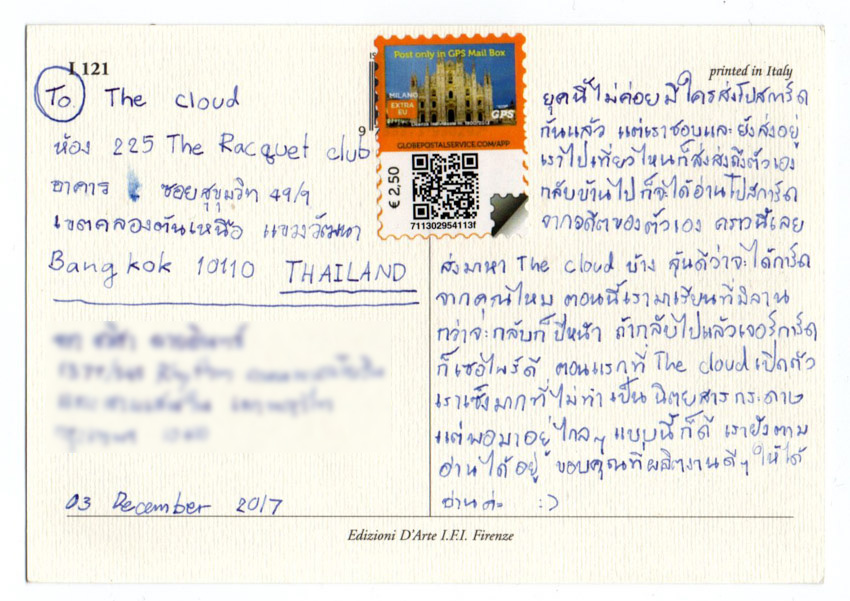 I 121
printed in Italy
To. The cloud
ห้อง 225 The Racquet club
อาคาร ซอยสุขุมวิท 49/9
เขตคลองตันเหนือ แขวงวัฒนา
Bangkok 10110 THAILAND
03 December 2017
Post only in GPS Mail Box
MILANO
EXTRA EU
GPS
GLOBEPOSTALSERVICE.COM/APP
€ 2,50
711302954113f
ยุคนี้ไม่ค่อยมีใครส่งโปสการ์ด
กันแล้ว แต่เราชอบและยังส่งอยู่
เราไปเที่ยวไหนก็ส่งส่งถึงตัวเอง
กลับบ้านไปก็จะได้อ่านโปสการ์ด
จากอดีตของตัวเอง คราวนี้เลย
ส่งมาหา The cloud บ้าง ลุ้นดีว่าจะได้การ์ด
จากคุณไหม ตอนนี้เรามาเรียนที่มิลาน
กว่าจะกลับก็ปีหน้า ถ้ากลับไปแล้วเจอการ์ด
ก็เซอไพร์ดี ตอนแรกที่ The cloud เปิดตัว
เราเซ็งมากที่ไม่ทำเป็นนิตยสารกระดาษ
แต่พอมาอยู่ไกลๆ แบบนี้ก็ดี เรายังตาม
อ่านได้อยู่ ขอบคุณที่ผลิตงานดีๆ ให้ได้
อ่านค่ะ :)
Edizioni D'Arte I.F.I. Firenze